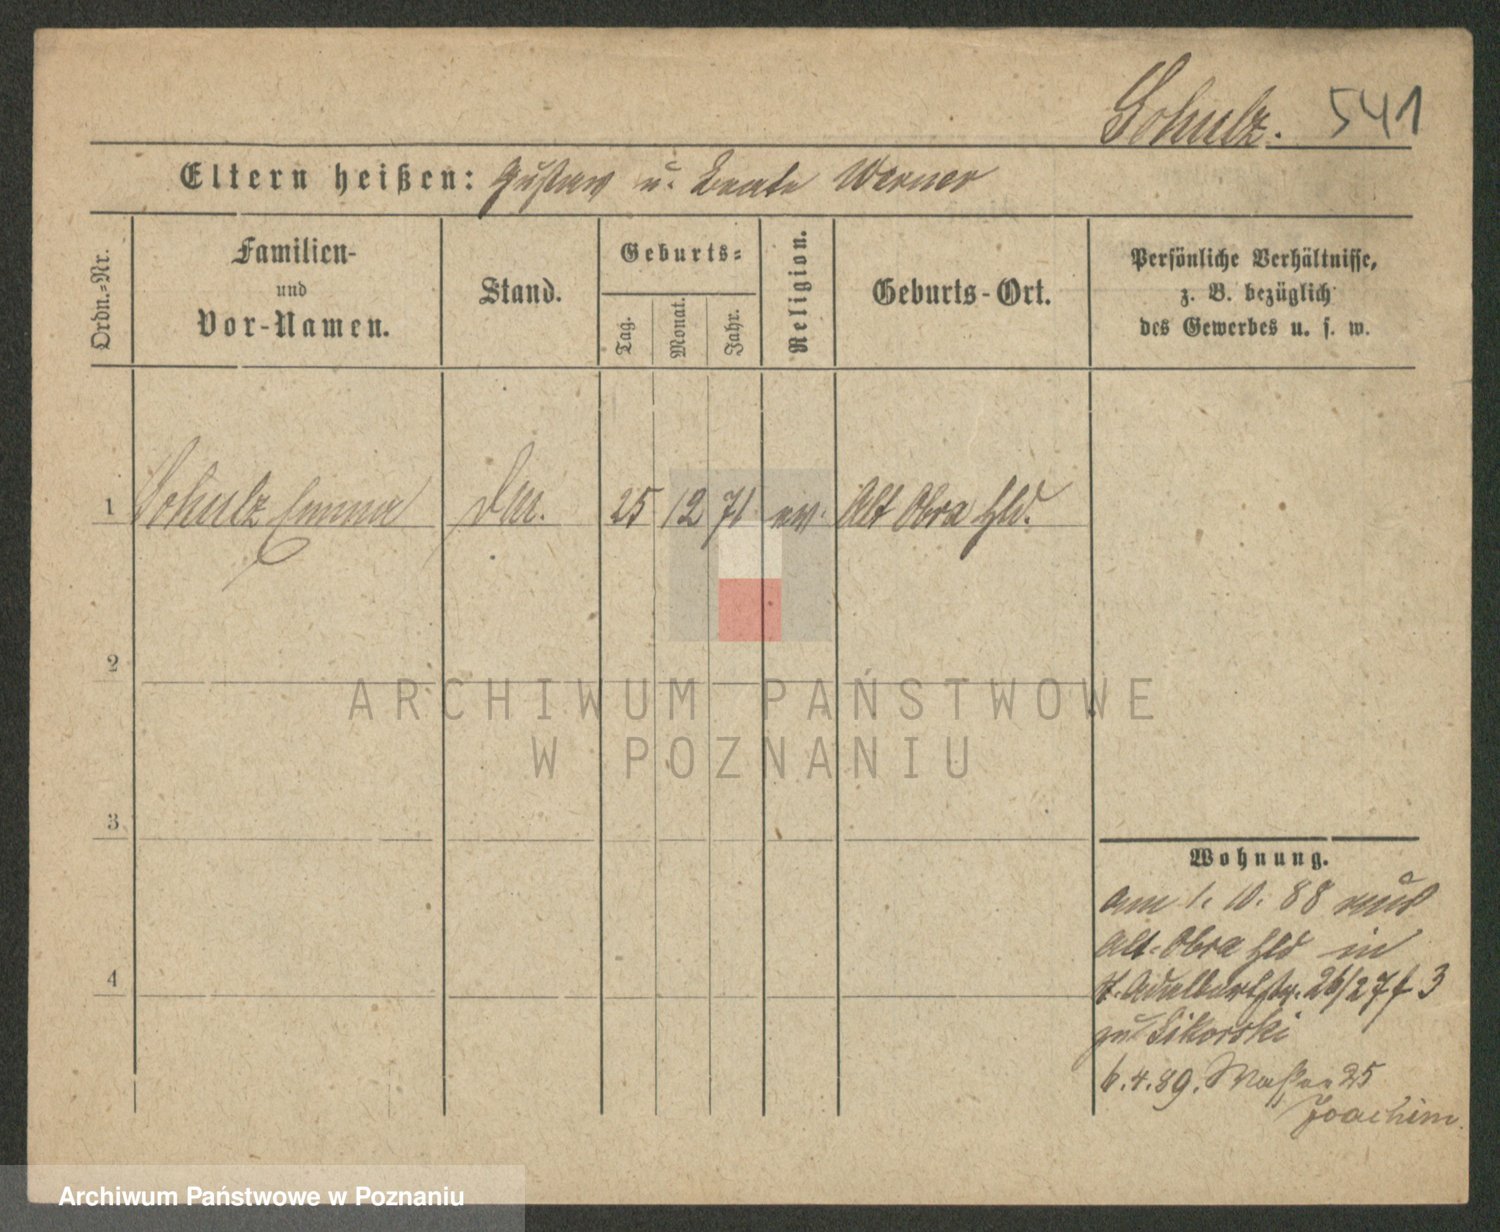 Schulz. 541
Eltern heißen: Gustav u. Beate Werner
Ordn.-Nr.
Familien-
und
Vor-Namen.
Stand.
Geburts-
Tag.
Monat.
Jahr.
Religion.
Geburts-Ort.
Persönliche Verhältnisse,
z. B. bezüglich
des Gewerbes u. s. w.
1 Schulz Emma 25 12 71 ev. Alt Obra Hld.
2
3
4
Wohnung.
am 1. 10. 88 aus
Alt-Obra Hld in
St. Adalbertstr. 26/27 f 3
zu Sikorski
6.4.89. Wasser 25
Joachim.
ARCHIWUM PAŃSTWOWE
W POZNANIU
Archiwum Państwowe w Poznaniu